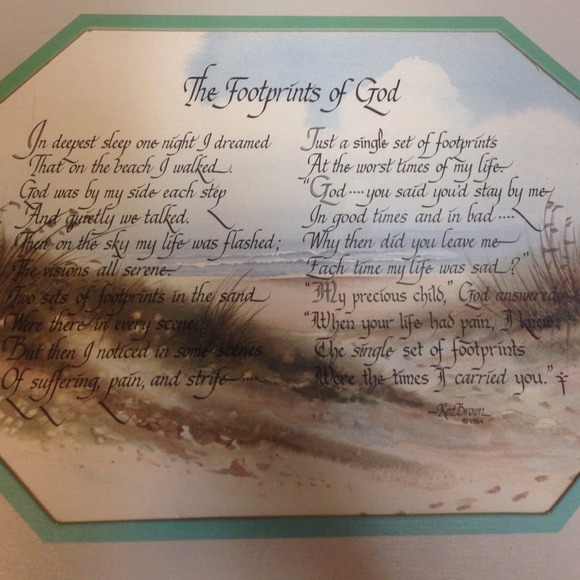 The Footprints of God
In deepest sleep one night I dreamed
That on the beach I walked.
God was by my side each step
And quietly we talked.
Then on the sky my life was flashed;
The visions all serene.
Two sets of footprints in the sand
Were there in every scene.
But then I noticed in some scenes
Of suffering, pain, and strife....
Just a single set of footprints
At the worst times of my life.
"God....you said you'd stay by me
In good times and in bad....
Why then did you leave me
Each time my life was sad?"
"My precious child," God answered,
"When your life had pain, I knew:
The single set of footprints
Were the times I carried you."
—Kat Brown
©1984